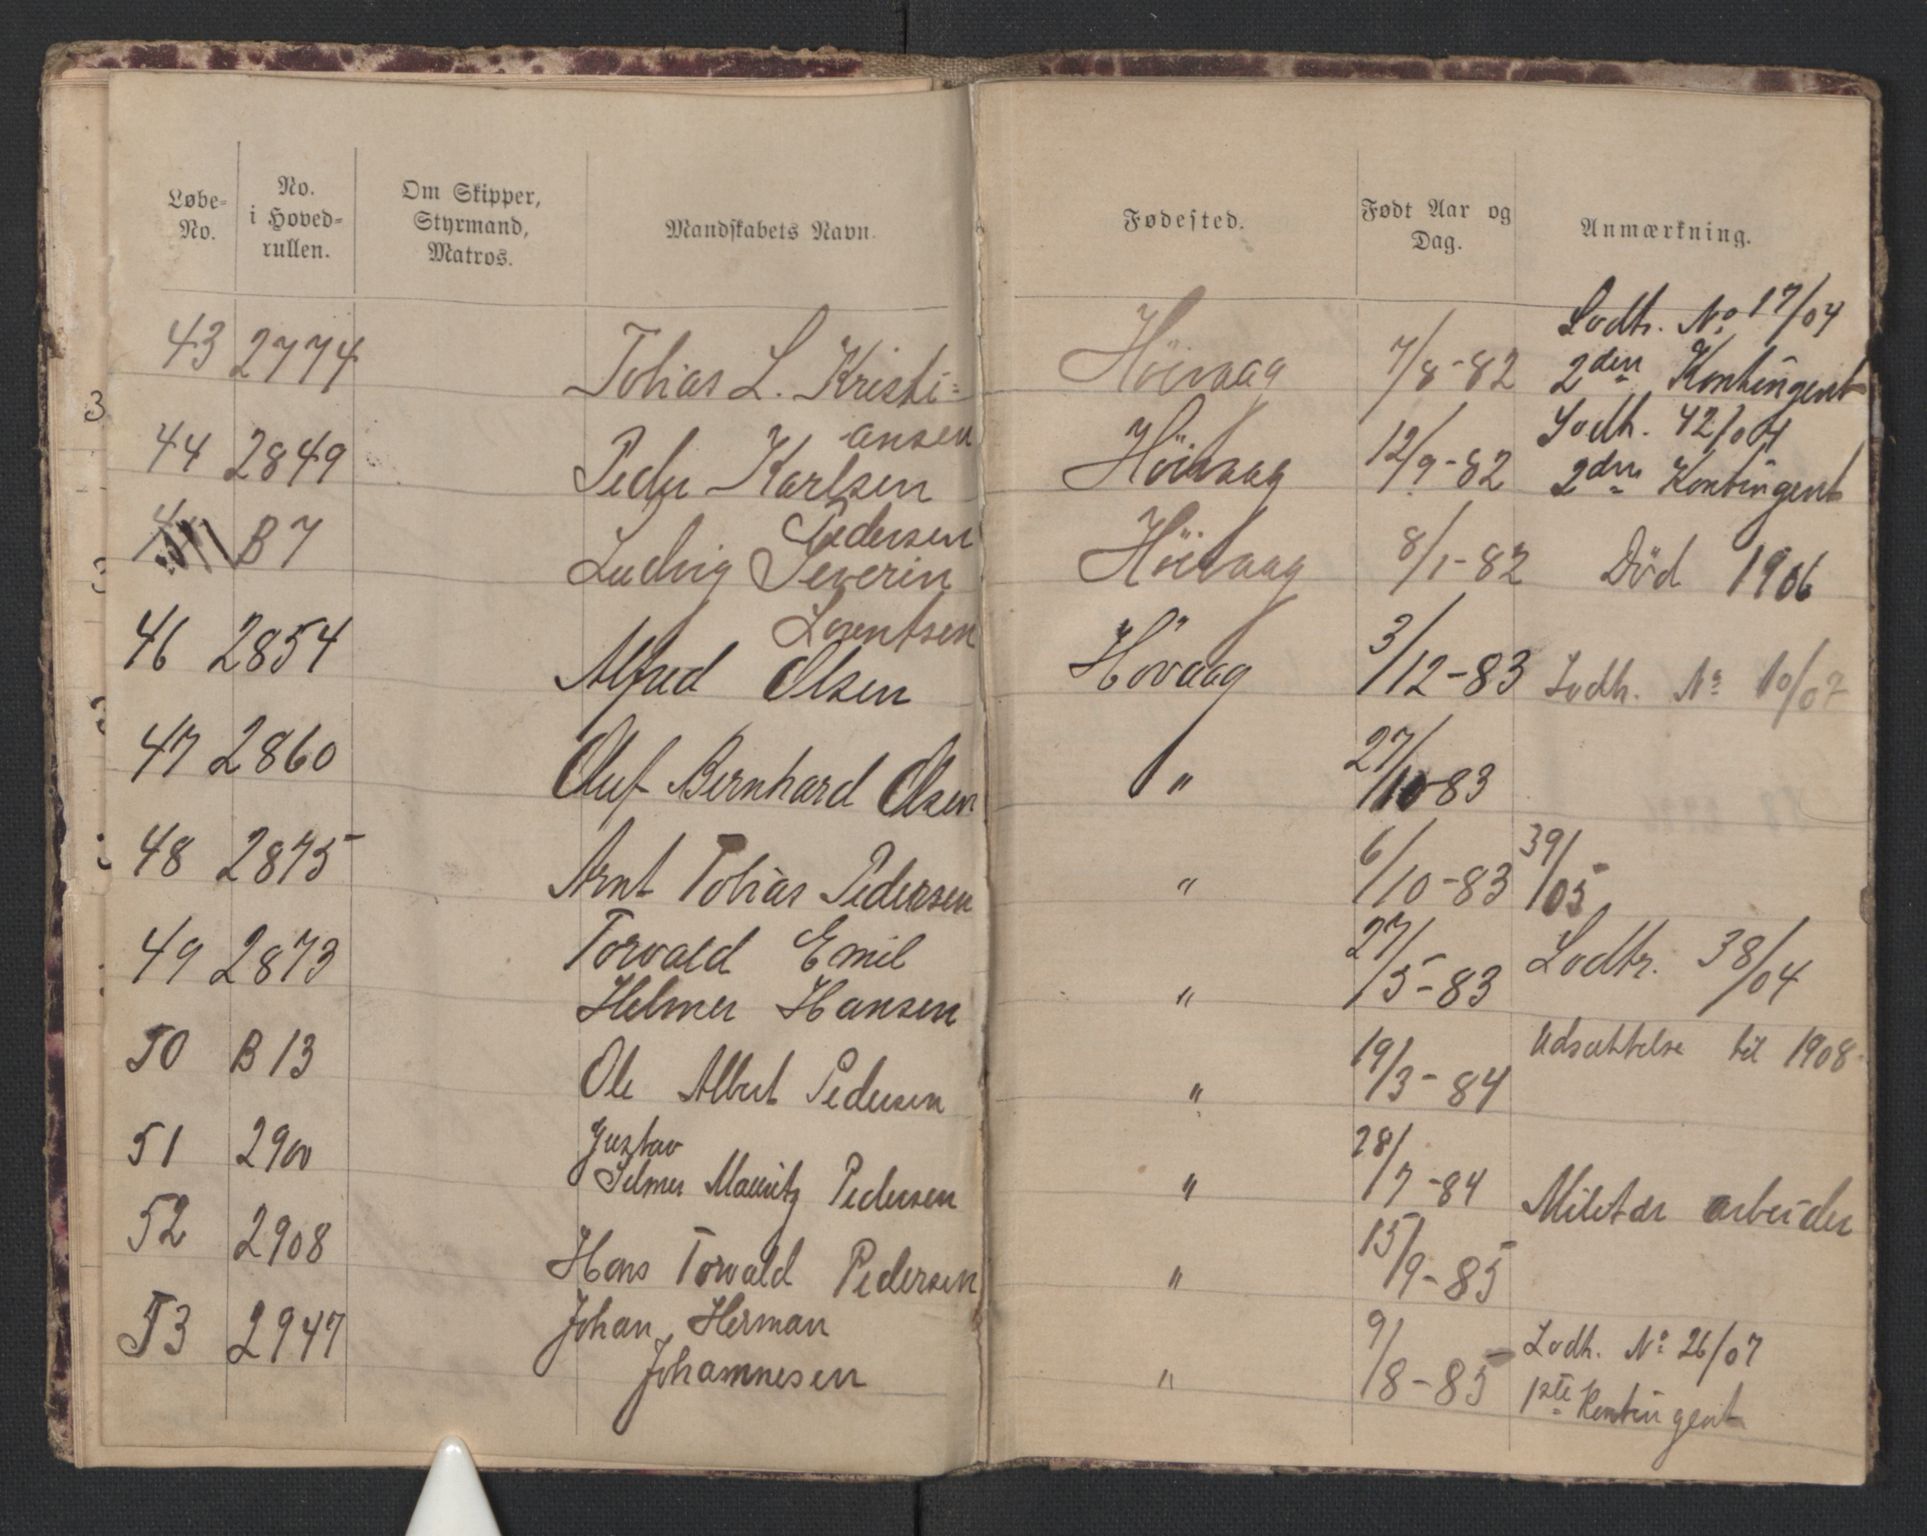 Løbe-No. No. i Hoved-rullen. Om Skipper, Styrmand, Matros. Mandskabets Navn. Fødested. Født Aar og Dag. Anmærkning.
Lodtr. No 17/04
43 2774 Tobias L. Kristi= Höivaag 7/8-82 2den Kontingent
ansen
Lodtr. 42/04
44 2849 Peder Karlsen Höivaag 12/9-82 2den Kontingent
Pedersen
B 7 Ludvig Severin Höivaag 8/1-82 Död 1906
Lorentsen
46 2854 Alfred Olsen Hövaag 3/12-83 Lodtr. No 10/07
47 2860 Oluf Bernhard Olsen " 27/10-83
48 2875 Arnt Tobias Pedersen " 6/10-83 39/05
49 2873 Torvald Emil
Helmer Hansen " 27/5-83 Lodtr. 38/04
50 B 13 Ole Albert Pedersen " 19/3-84 Udsættelse til 1908
51 2900 Gustav
Selmer Mauritz Pedersen " 28/7-84 Militær arbeider
52 2908 Hans Torvald Pedersen " 15/9-85
53 2947 Johan Herman
Johannesen " 9/8-85 Lodtr. No 26/07
1ste Kontingent